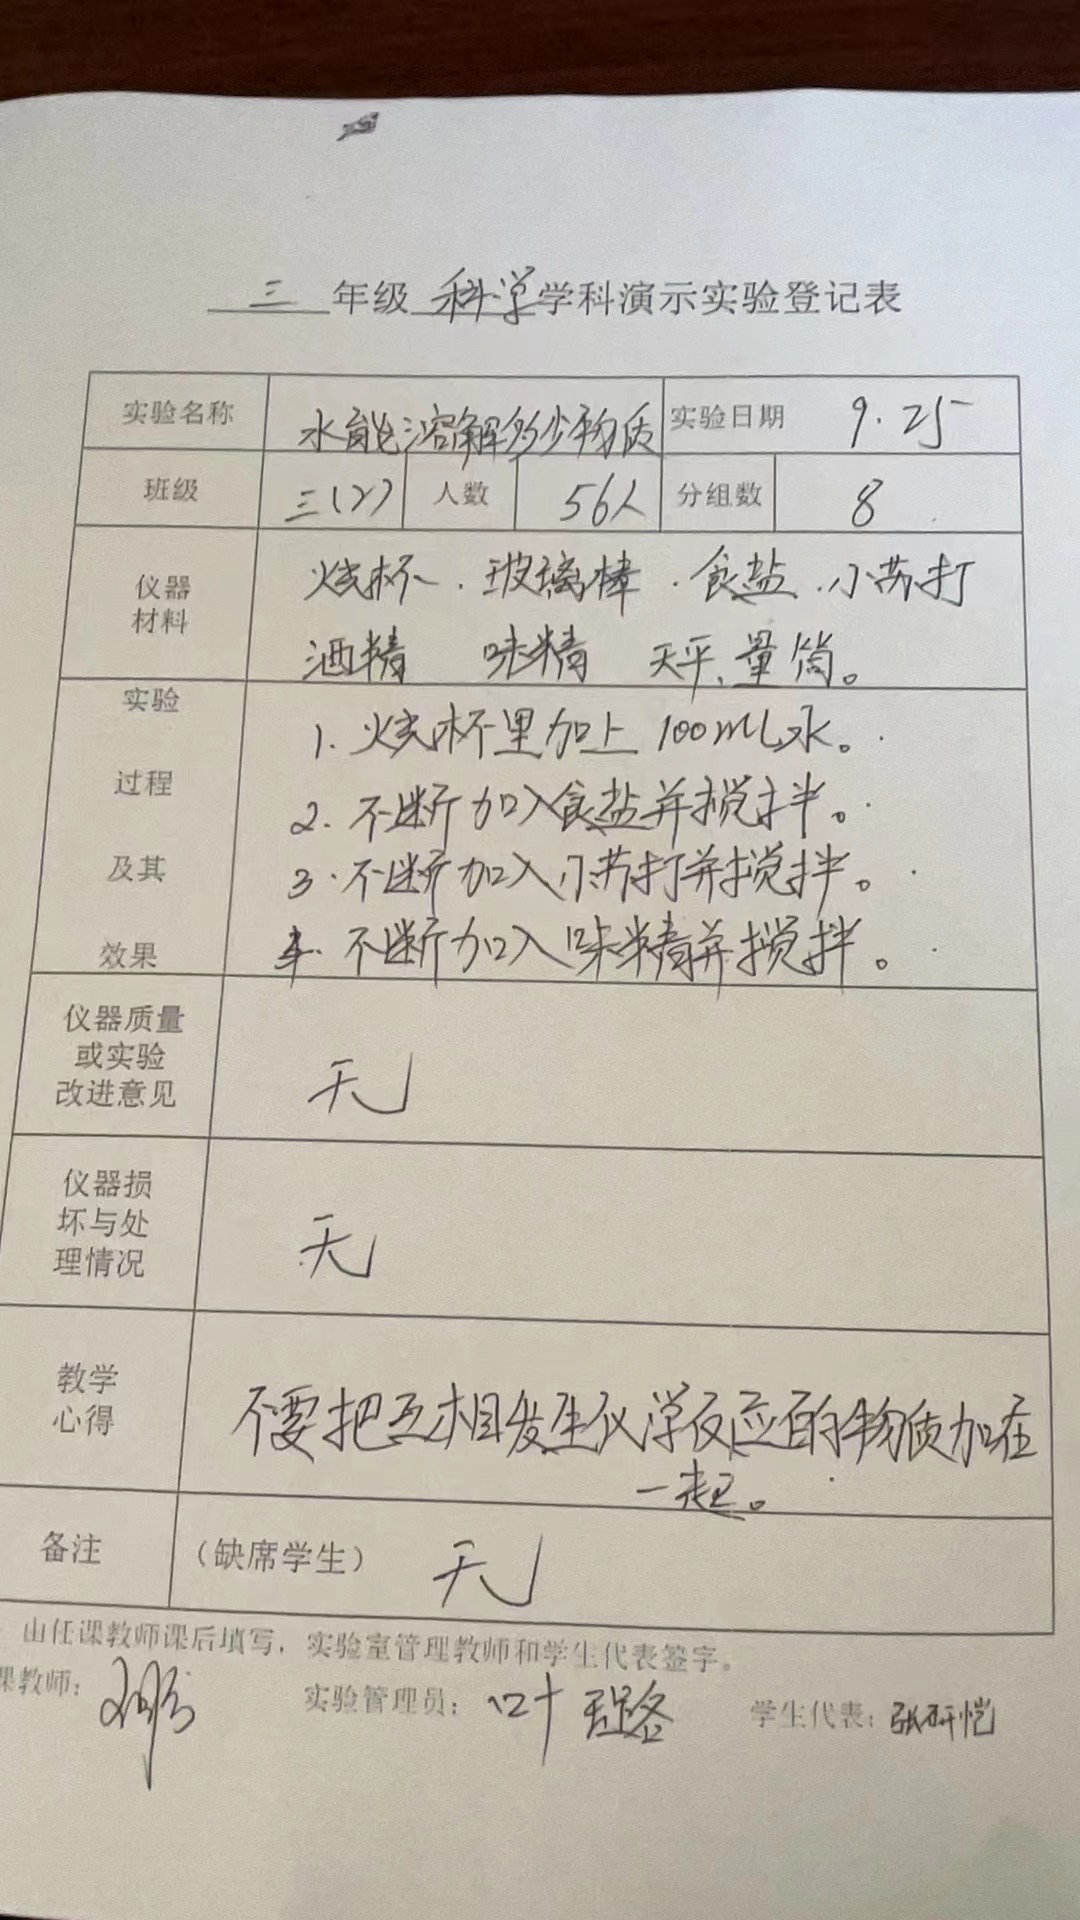 三年级科学学科演示实验登记表
实验名称 水能溶解多少物质 实验日期 9.25
班级 三(2) 人数 56人 分组数 8
仪器 烧杯.玻璃棒.食盐.小苏打
材料 酒精 味精 天平、量筒。
实验
1.烧杯里加上100mL水。
过程
2.不断加入食盐并搅拌。
及其
3.不断加入小苏打并搅拌。
效果
4.不断加入味精并搅拌。
仪器质量
或实验
改进意见
无
仪器损
坏与处
理情况
无
教学
心得
不要把互相发生化学反应的物质加在
一起。
备注 (缺席学生) 无
由任课教师课后填写,实验室管理教师和学生代表签字。
课教师:
实验管理员:叶 学生代表:张研恺